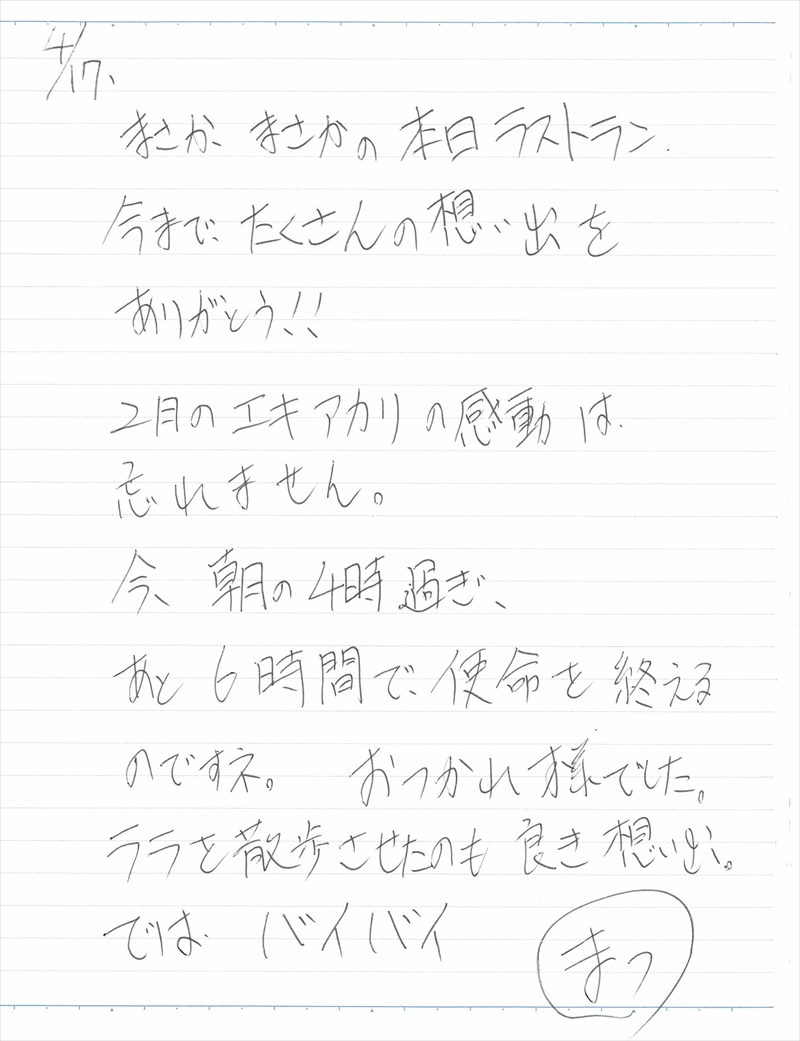 4/17、
まさか、まさかの本日ラストラン.
今まで、たくさんの想い出を
ありがとう!!
2月のエキアカリの感動は.
忘れません。
今、朝の4時過ぎ、
あと6時間で、使命を終える
のですネ。 おつかれ様でした。
ララを散歩させたのも良き想い出。
では. バイバイ
まっ